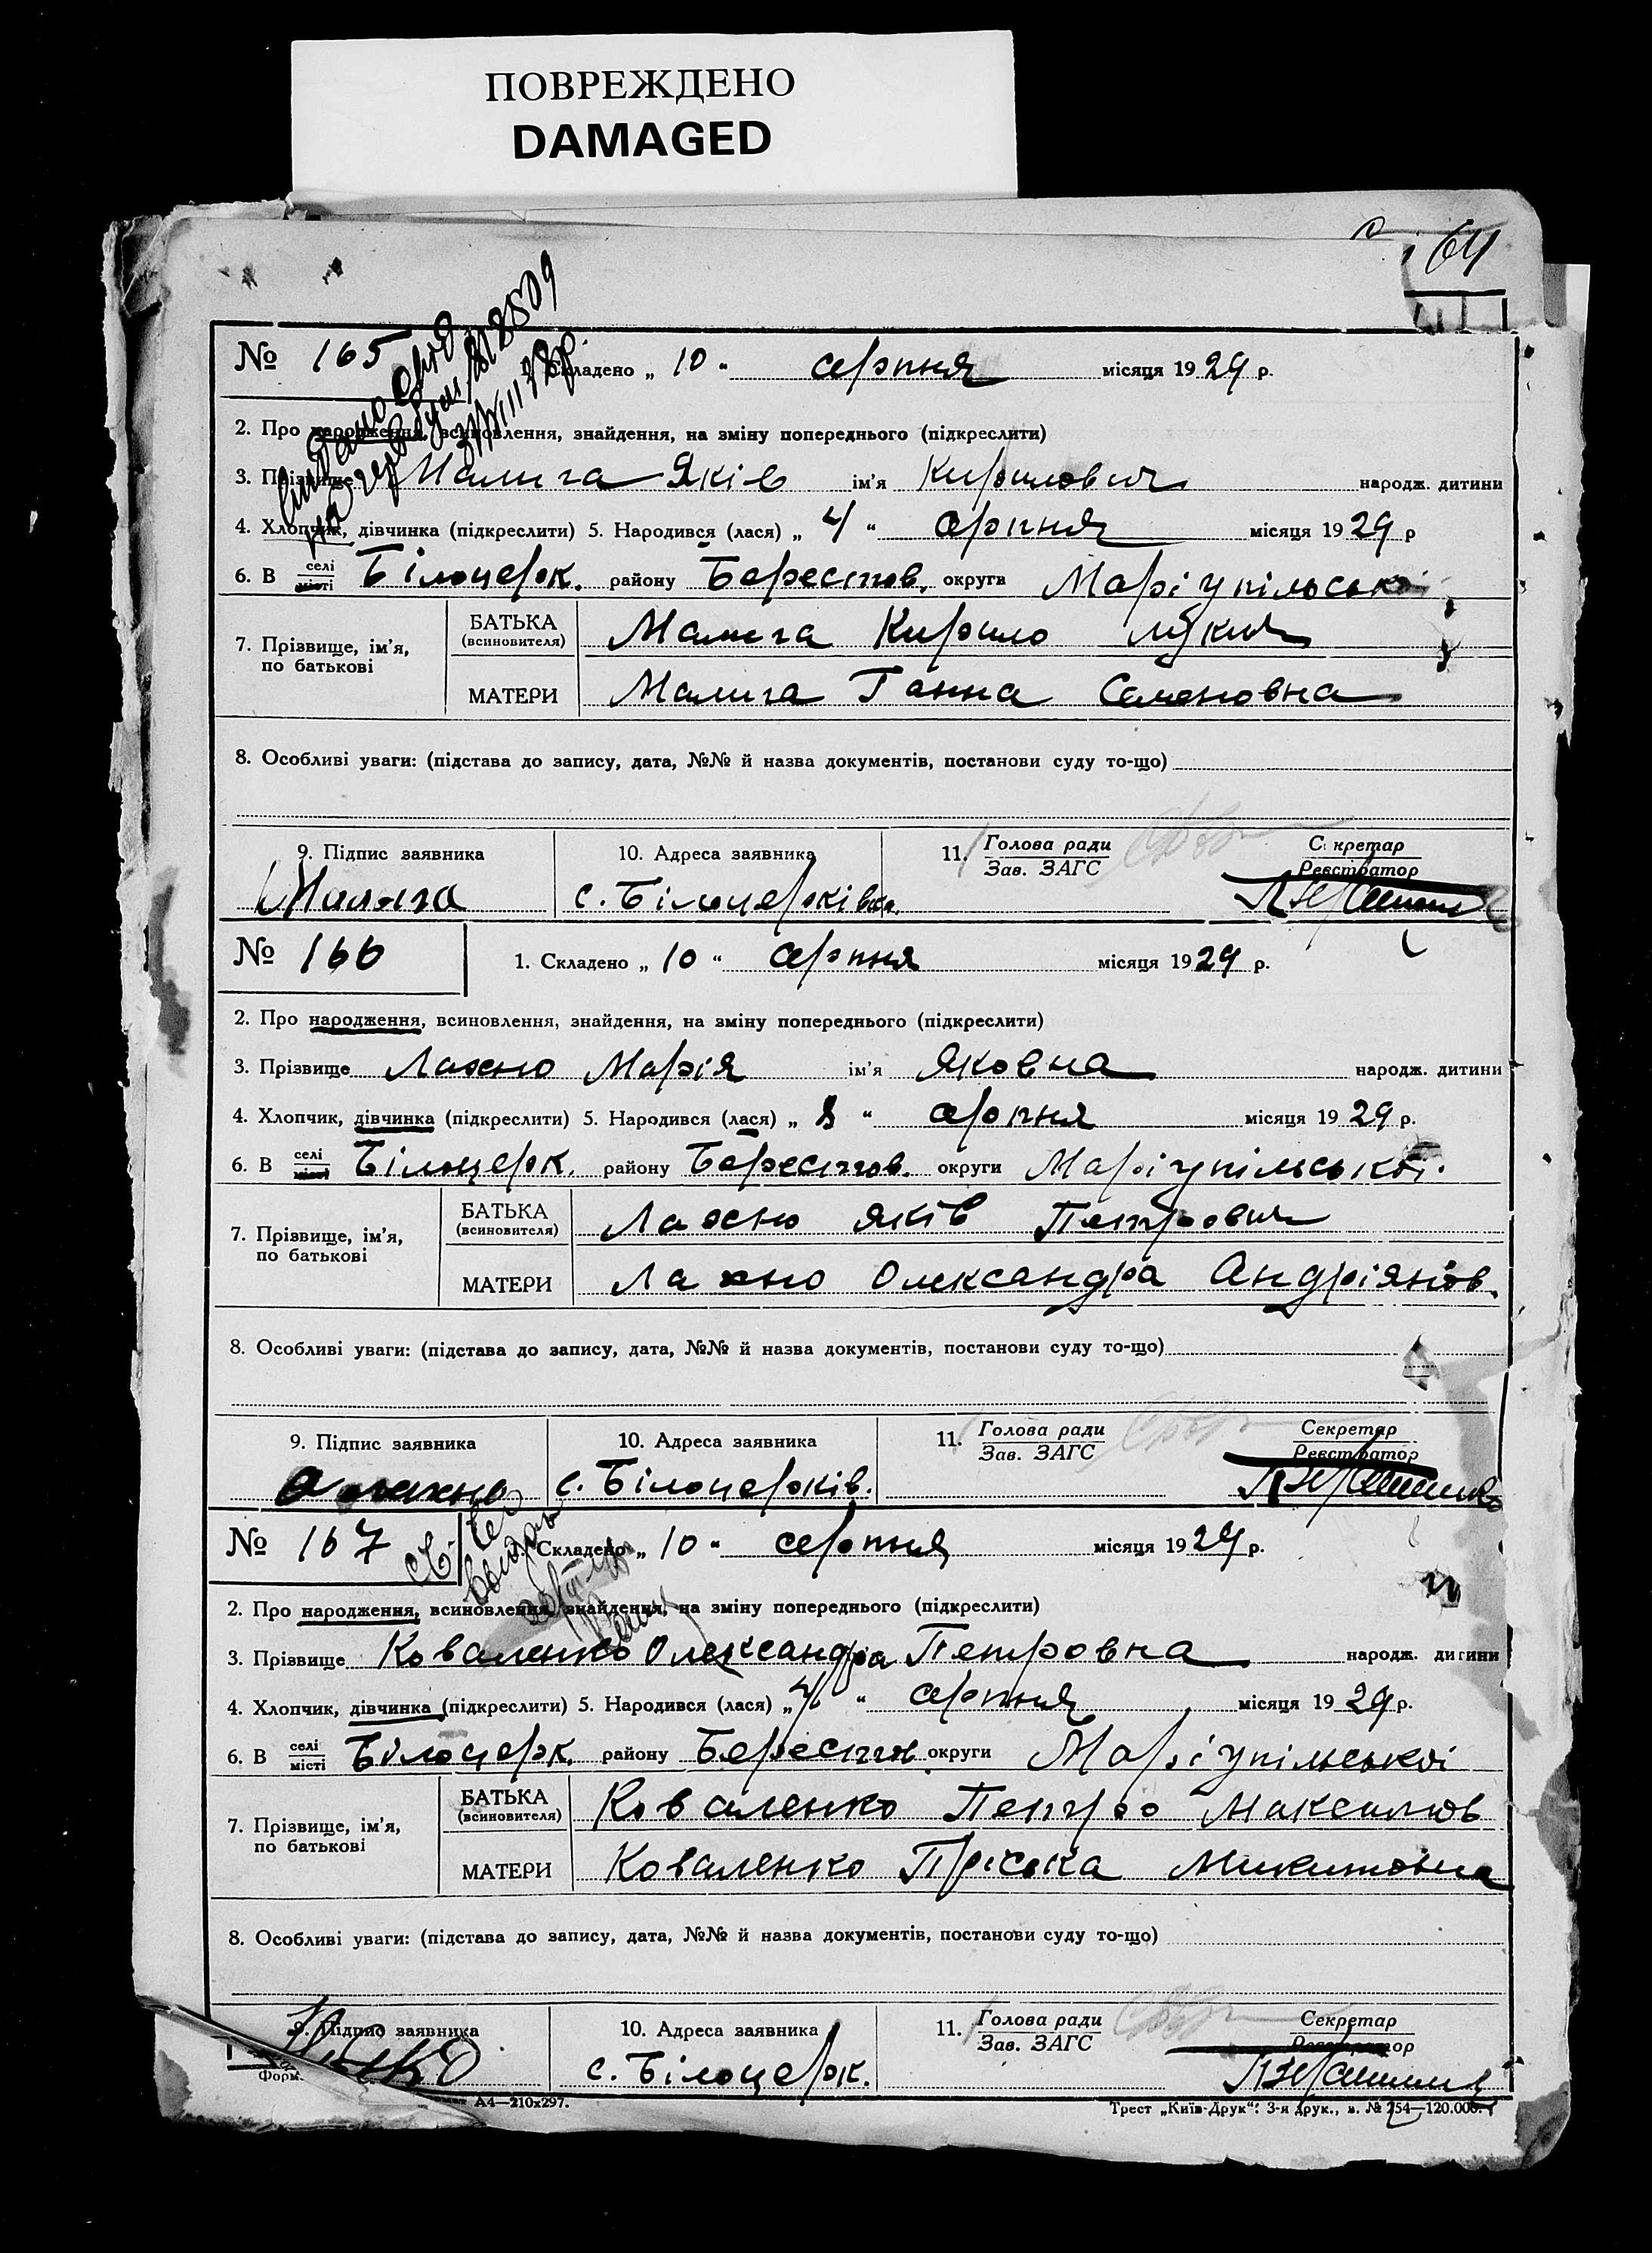 ПОВРЕЖДЕНО
DAMAGED
64
№ 165
1. Складено „ 10 “ серпня місяця 1929 р.
2. Про народження, всиновлення, знайдення, на зміну попереднього (підкреслити)
3. Прізвище Малига Яків ім'я Кирилович народж. дитини
4. Хлопчик, дівчинка (підкреслити) 5. Народився (лася) „ 4 “ серпня місяця 1929 р
6. В селі місті Білоцерк. району Берестов. округи Маріупільської
7. Прізвище, ім'я, по батькові
БАТЬКА (всиновителя) Малига Кирило Лукич
МАТЕРИ Малига Ганна Семеновна
8. Особливі уваги: (підстава до запису, дата, №№ й назва документів, постанови суду то-що)
9. Підпис заявника 10. Адреса заявника 11. Голова ради Зав. ЗАГС Секретар Реєстратор
Малига с. Білоцерківка.
№ 166 1. Складено „ 10 “ серпня місяця 1929 р.
2. Про народження, всиновлення, знайдення, на зміну попереднього (підкреслити)
3. Прізвище Лахно Марія ім'я Яковна народж. дитини
4. Хлопчик, дівчинка (підкреслити) 5. Народився (лася) „ 8 “ серпня місяця 1929 р.
6. В селі місті Білоцерк. району Берестов. округи Маріупільської.
7. Прізвище, ім'я, по батькові
БАТЬКА (всиновителя) Лахно Яків Петрович
МАТЕРИ Лахно Олександра Андріянов.
8. Особливі уваги: (підстава до запису, дата, №№ й назва документів, постанови суду то-що)
9. Підпис заявника 10. Адреса заявника 11. Голова ради Зав. ЗАГС Секретар Реєстратор
Лахно с. Білоцерків.
№ 167 Складено „ 10 “ серпня місяця 1929 р.
2. Про народження, всиновлення, знайдення, на зміну попереднього (підкреслити)
3. Прізвище Коваленко Олександра Петровна народж. дитини
4. Хлопчик, дівчинка (підкреслити) 5. Народився (лася) „ 4 “ серпня місяця 1929 р.
6. В селі місті Білоцерк. району Берестов. округи Маріупільської
7. Прізвище, ім'я, по батькові
БАТЬКА (всиновителя) Коваленко Петро Максимов
МАТЕРИ Коваленко Пріська Микитовна
8. Особливі уваги: (підстава до запису, дата, №№ й назва документів, постанови суду то-що)
9. Підпис заявника 10. Адреса заявника 11. Голова ради Зав. ЗАГС Секретар Реєстратор
с. Білоцерк.
Форм. А4—210х297. Трест „Київ-Друк“: 3-я друк., з. № 254—120.000.